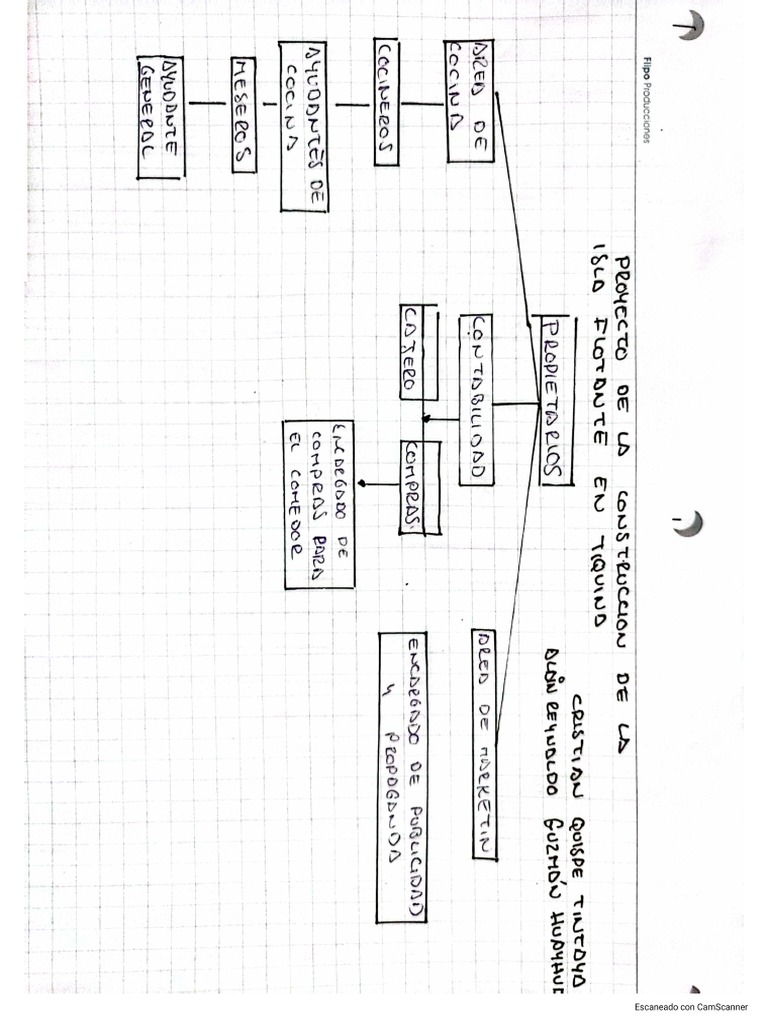 Filpo Producciones
PROYECTO DE LA CONSTRUCCION DE LA
ISLA FLOTANTE EN TIQUINA
CRISTIAN QUISPE TINTAYA
REYNALDO GUZMÁN
PROPIETARIOS
AREA DE
COCINA
COCINEROS
AYUDANTES DE
COCINA
MESEROS
AYUDANTE
GENERAL
CONTABILIDAD
CAJERO
COMPRAS
ENCARGADO DE
COMPRAS PARA
EL COMEDOR
AREA DE MARKETIN
ENCARGADO DE PUBLICIDAD
Y PROPOGANDA
Escaneado con CamScanner